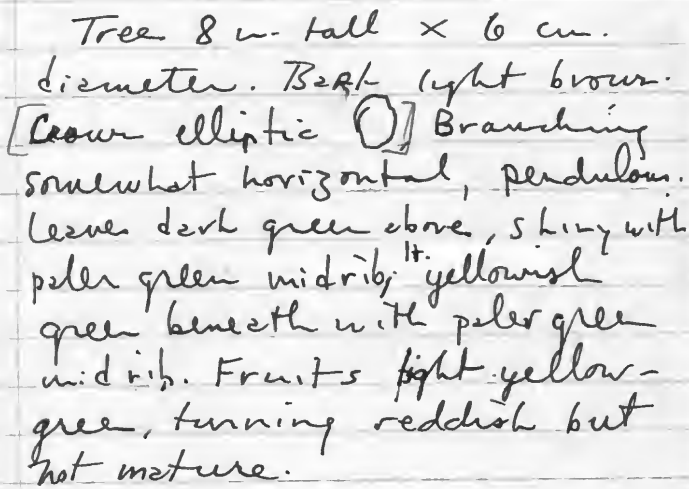 Tree 8 m. tall × 6 cm.
diameter. Bark light brown.
[Crown elliptic] Branching
somewhat horizontal, pendulous.
Leaves dark green above, shiny with
paler green midrib; lt. yellowish
green beneath with paler green
midrib. Fruits light yellow-
green, turning reddish but
not mature.